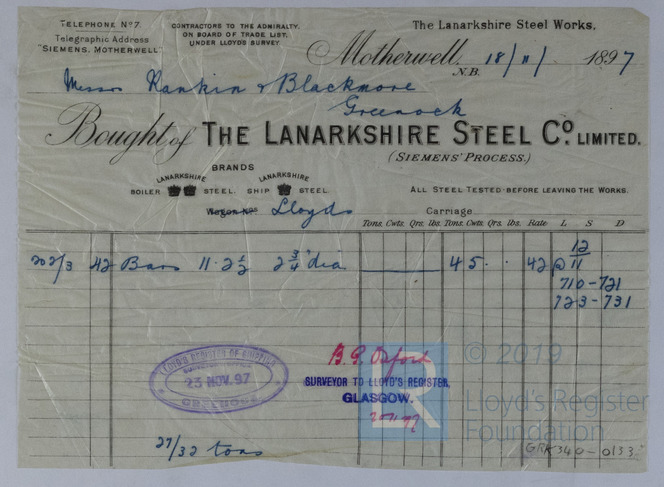 TELEPHONE Nº7.
Telegraphic Address
"SIEMENS, MOTHERWELL"
CONTRACTORS TO THE ADMIRALTY,
ON BOARD OF TRADE LIST,
UNDER LLOYDS SURVEY.
The Lanarkshire Steel Works,
Motherwell, 18/11/ 1897
N.B.
Messrs Rankin & Blackmore
Greenock
Bought of THE LANARKSHIRE STEEL Cº LIMITED.
(SIEMENS' PROCESS.)
BRANDS
LANARKSHIRE LANARKSHIRE
BOILER STEEL. SHIP STEEL.
ALL STEEL TESTED BEFORE LEAVING THE WORKS.
Wagon Nos Lloyds Carriage
Tons. Cwts. Qrs. lbs. Tons. Cwts. Qrs. lbs. Rate L S D
12
202/3 42 Bars 11·2½ 2¾" dia 45 · · 42 @ 11
710-721
723-731
LLOYD'S REGISTER OF SHIPPING
23 NOV. 97
GREENOCK
SURVEYOR TO LLOYD'S REGISTER,
GLASGOW.
27/32 tons
© 2019
Lloyd's Register
Foundation
GRK340-0133